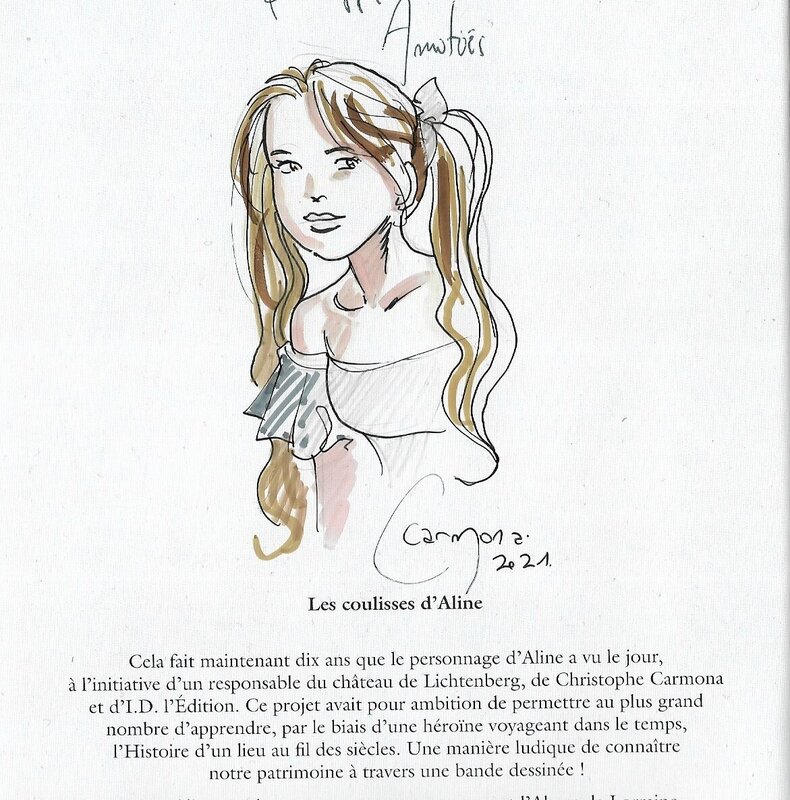 Amitiés
Carmona.
2021.
Les coulisses d'Aline
Cela fait maintenant dix ans que le personnage d'Aline a vu le jour,
à l'initiative d'un responsable du château de Lichtenberg, de Christophe Carmona
et d'I.D. l'Édition. Ce projet avait pour ambition de permettre au plus grand
nombre d'apprendre, par le biais d'une héroïne voyageant dans le temps,
l'Histoire d'un lieu au fil des siècles. Une manière ludique de connaître
notre patrimoine à travers une bande dessinée !